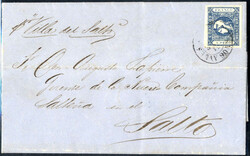 pr Villa del Salto
Sr Don Augusto
Gerente de la Nueva Compañia
Salteña en el
Salto